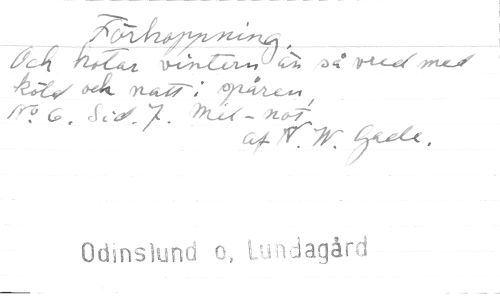 Förhoppning.
Och hotar vintern än så vred med
köld och natt i spåren,
No. 6. Sid. 7. Mel-not,
af N. W. Gade.
Odinslund o, Lundagård